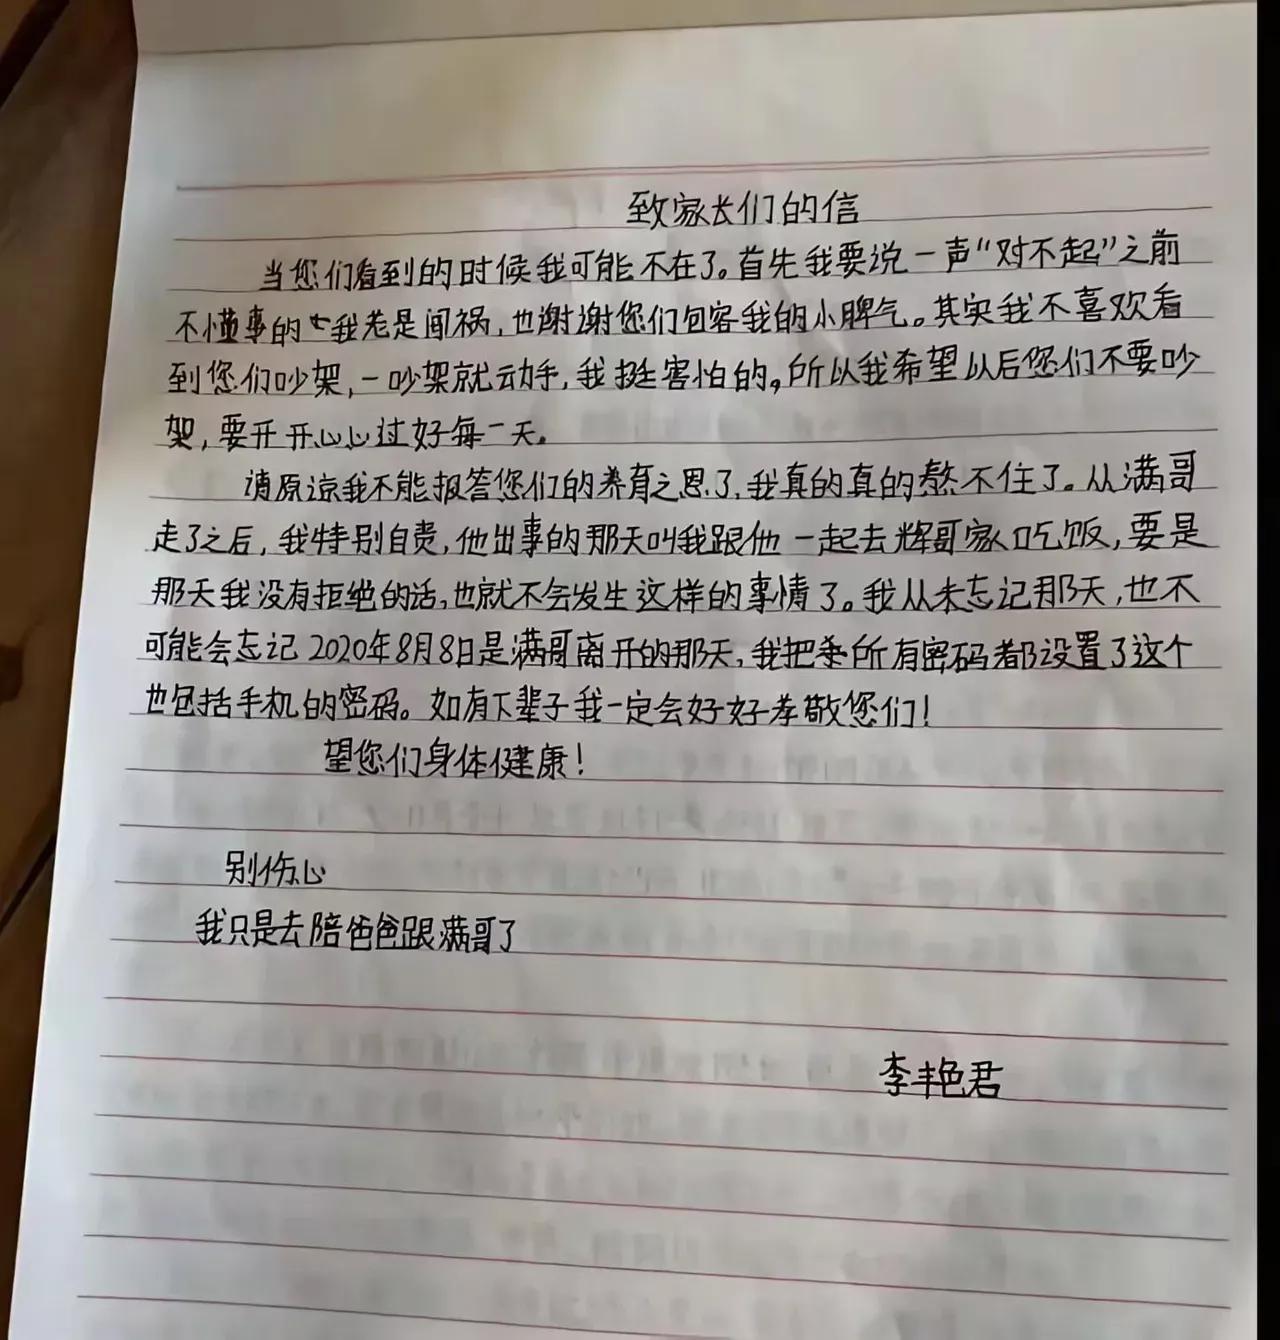 致家长们的信
当您们看到的时候我可能不在了。首先我要说一声“对不起”之前
不懂事的我老是闯祸,也谢谢您们包容我的小脾气。其实我不喜欢看
到您们吵架,一吵架就动手,我挺害怕的。所以我希望以后您们不要吵
架,要开开心心过好每一天。
请原谅我不能报答您们的养育之恩了,我真的真的熬不住了。从满哥
走了之后,我特别自责,他出事的那天叫我跟他一起去辉哥家吃饭,要是
那天我没有拒绝的话,也就不会发生这样的事情了。我从未忘记那天,也不
可能会忘记2020年8月8日是满哥离开的那天,我把所有密码都设置了这个
也包括手机的密码。如有下辈子我一定会好好孝敬您们!
望您们身体健康!
别伤心
我只是去陪爸爸跟满哥了
李艳君